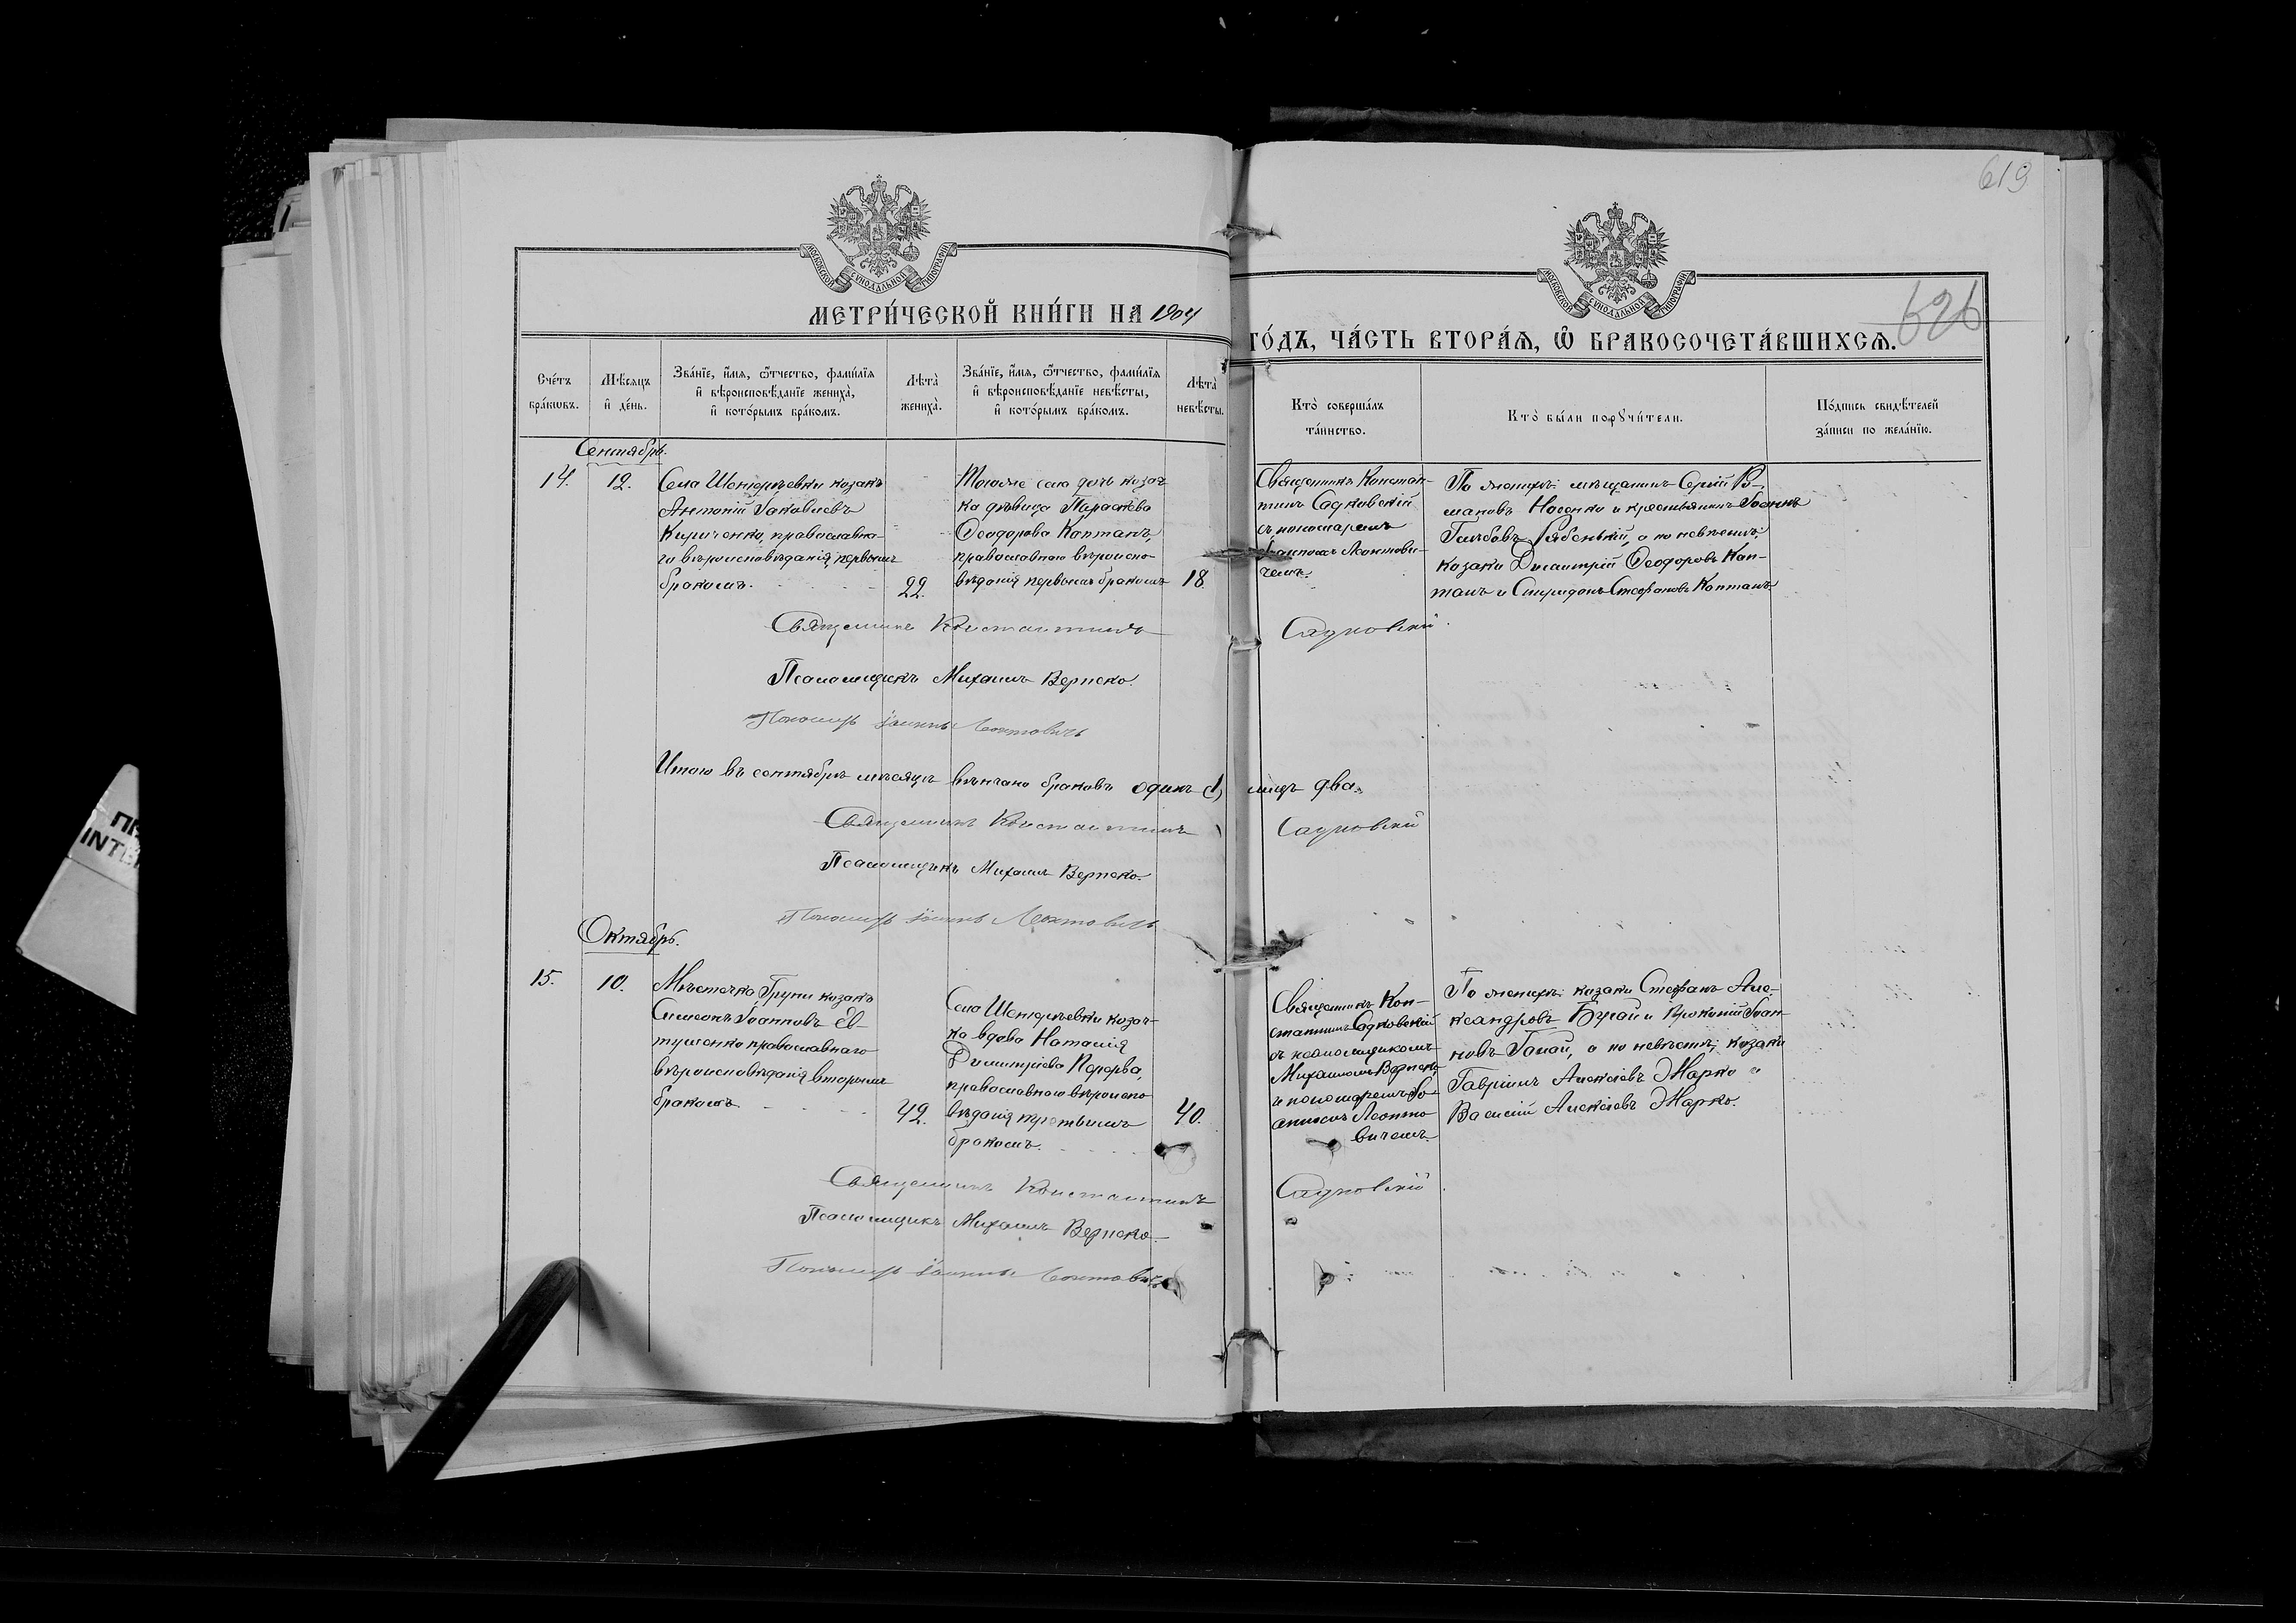 619
626
МОСКОВСКОЙ СУНОДАЛЬНОЙ ТИПОГРАФІИ
МОСКОВСКОЙ СУНОДАЛЬНОЙ ТИПОГРАФІИ
МЕТРИ́ЧЕСКОЙ КНИ́ГИ НА 1904
ГО́ДЪ, ЧА́СТЬ ВТОРА́Ѧ, Ѡ҆ БРАКОСОЧЕТА́ВШИХСѦ.
Сче́тъ бра́кѡвъ.
Мѣ́сяцъ и҆ де́нь.
Зва́нїе, и҆́мя, ѻ҆́тчество, фамі́лїя и҆ вѣроисповѣ́данїе жениха̀, и҆ кото́рымъ бра́комъ.
Лѣ́та̀ жениха̀.
Зва́нїе, и҆́мя, ѻ҆́тчество, фамі́лїя и҆ вѣроисповѣ́данїе невѣ́сты, и҆ кото́рымъ бра́комъ.
Лѣ́та̀ невѣ́сты.
Кто̀ соверша́лъ та́инство.
Кто̀ бы́ли порꙋчи́тели.
По́дпись свидѣ́телей за́писи по жела́нїю.
Сентябрь.
14.
12.
Села козакъ
Антоній Іаковлевъ
Кириченко, православна-
го вѣроисповѣданія, первымъ
бракомъ.
22.
Тогоже села дочь козач-
ка дѣвица Параскева
Ѳеодорова Коптанъ,
православнаго вѣроиспо-
вѣданія первымъ бракомъ
18
Священникъ Констан-
тинъ Садковскій
съ пономаремъ
Іоанномъ Леонтови-
чемъ.
По женихѣ: мѣщанинъ Сергій Ро-
мановъ Носенко и крестьянинъ Іоаннъ
Глѣбовъ Рябенькій, а по невѣстѣ:
козаки Димитрій Ѳеодоровъ Коп-
танъ и Спиридонъ Стефановъ Коптанъ.
Священникъ Константинъ Садковскій
Псаломщикъ Михаилъ Вернеко.
Пономарь Іоаннъ Леонтовичъ
Итого въ сентябрѣ мѣсяцѣ вѣнчано браковъ одинъ (1) лицъ два.
Священникъ Константинъ Садковскій
Псаломщикъ Михаилъ Вернеко.
Пономарь Іоаннъ Леонтовичъ
Октябрь.
15.
10.
Мѣстечка Груни козакъ
Симеонъ Іоанновъ Ев-
тушенко православнаго
вѣроисповѣданія вторымъ
бракомъ
42.
Села козач-
ка вдова Наталія
Димитріева
православнаго вѣроиспо-
вѣданія третьимъ
бракомъ.
40.
Священникъ Кон-
стантинъ Садковскій
съ псаломщикомъ
Михаиломъ Вернеко
и пономаремъ Іо-
анномъ Леонто-
вичемъ
По женихѣ: козаки Стефанъ Але-
ксандровъ и Прокопій Іоан-
новъ а по невѣстѣ: козаки
Гавріилъ Алексіевъ Жарко и
Василій Алексіевъ Жарко.
Священникъ Константинъ Садковскій
Псаломщикъ Михаилъ Вернеко.
Пономарь Іоаннъ Леонтовичъ